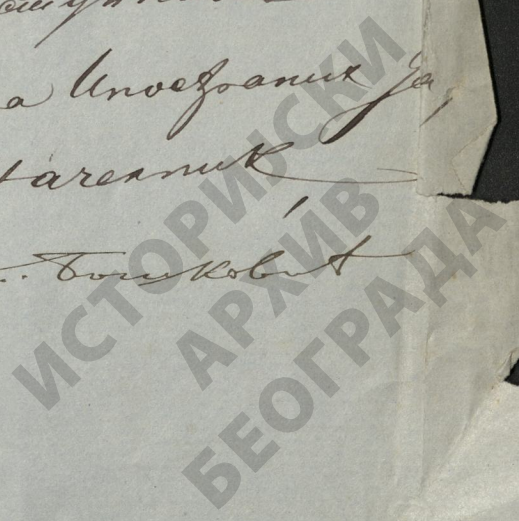 а Иностраних Де,
начелник
Бошковић
ИСТОРИЈСКИ
АРХИВ
БЕОГРАДА